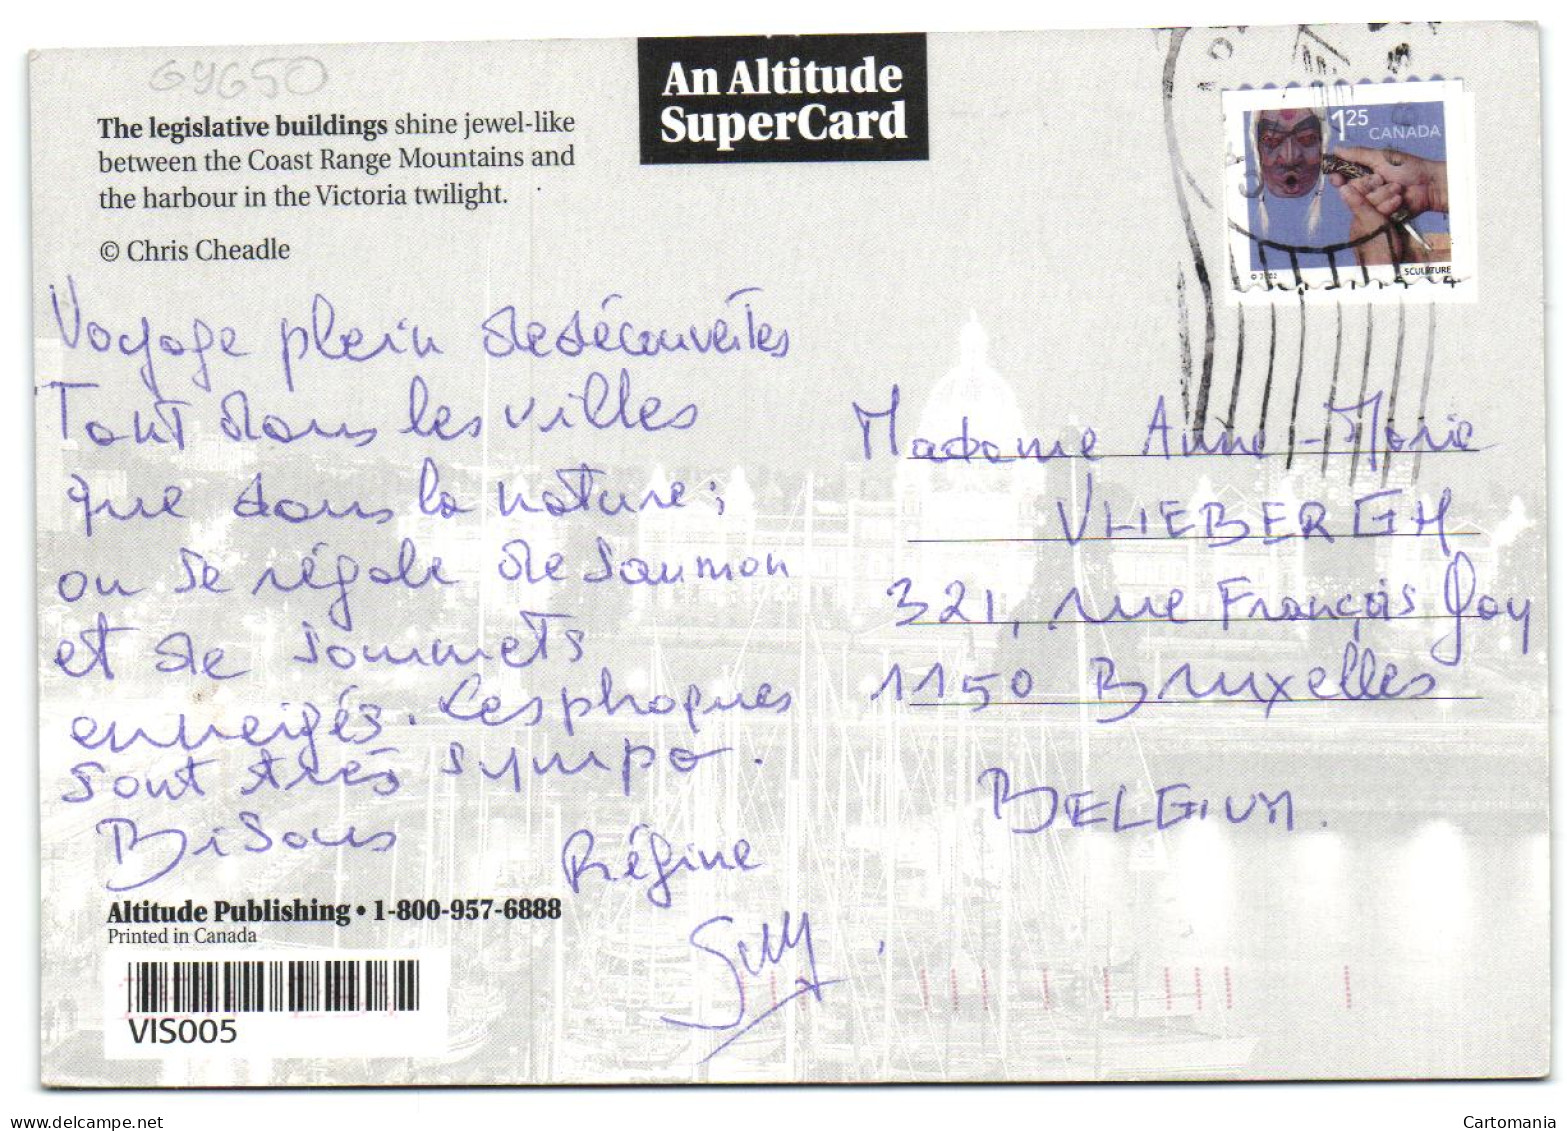 GYG50
An Altitude
SuperCard
The legislative buildings shine jewel-like
between the Coast Range Mountains and
the harbour in the Victoria twilight.
© Chris Cheadle
1.25 CANADA
© 2002
SCULPTURE
Voyage plein de découvertes
Tant dans les villes
que dans la nature;
on se régale de saumon
et de sommets
enneigés. Les phoques
sont très sympa.
Bisous
Régine
Madame Anne-Marie
VLIEBERGH
321, rue François Gay
1150 Bruxelles
BELGIUM.
Altitude Publishing • 1-800-957-6888
Printed in Canada
VIS005
www.delcampe.net
Cartomania